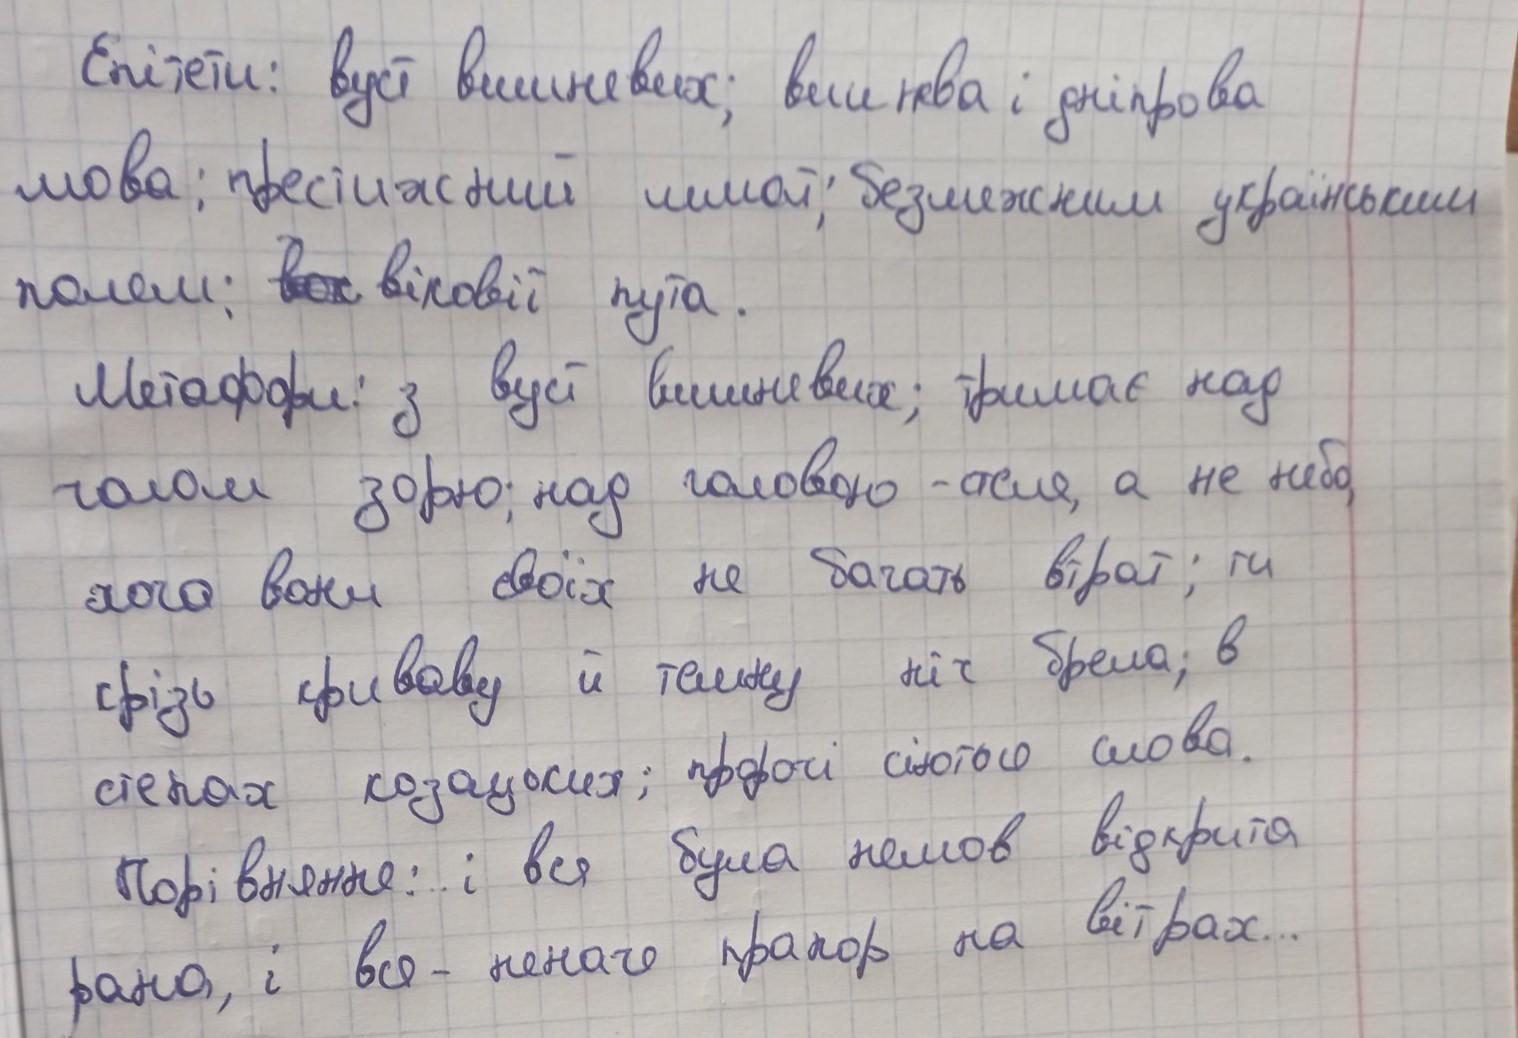 Епітети: вуст вишневих; вишнева і дніпрова
мова; престижний шмат; безмежним українським
полем; віковії пута.
Метафори: з вуст вишневих; тримає над
чолом зорю; над головою - стеля, а не небо,
хоча вони своїх не бачать втрат; ти
крізь криваву й темну ніч брела; в
степах козацьких; пророчі сіютью слова.
Порівняння: і вся була немов відкрита
рана, і вся - неначе прапор на вітрах...